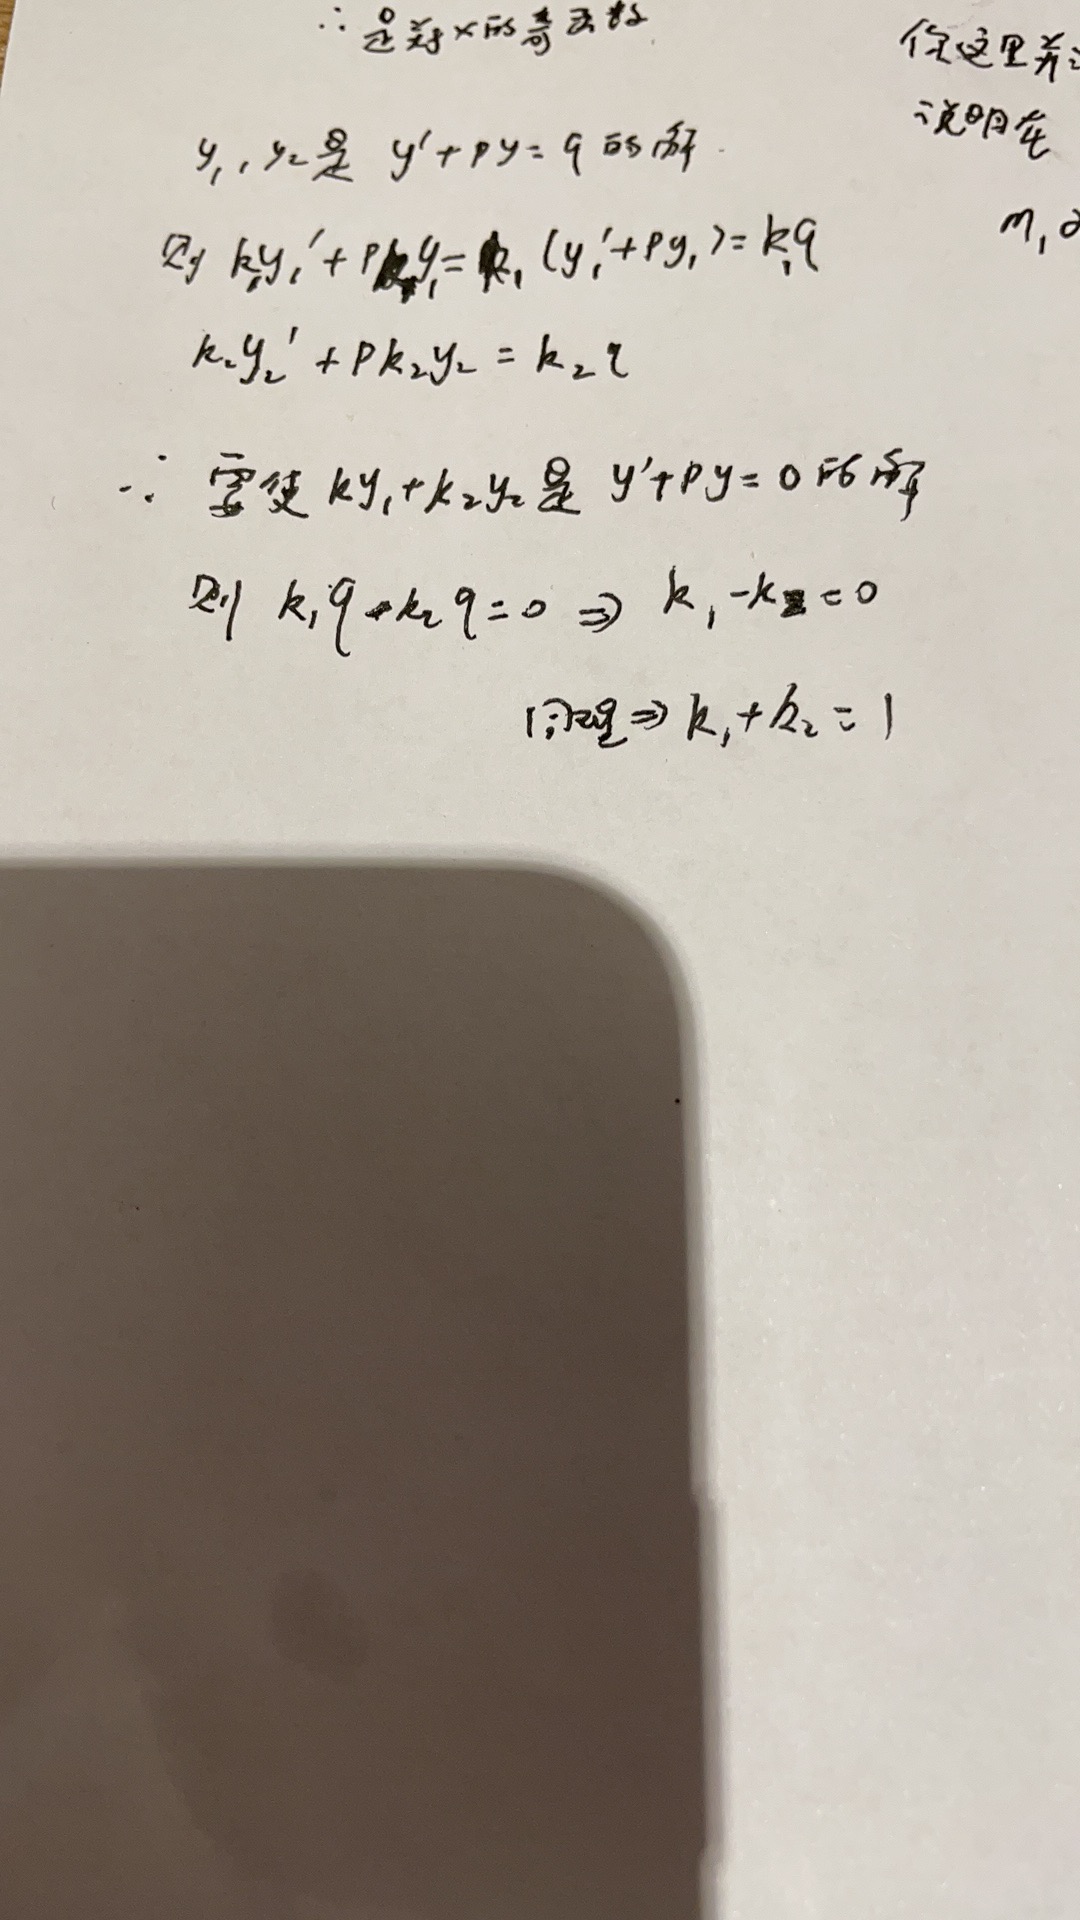 ∴ 是关于x的奇函数
你这里
说明在
y₁,y₂是 y'+py=q 的解.
则 k₁y₁'+pk₁y₁=k₁(y₁'+py₁)=k₁q
m,
k₂y₂'+pk₂y₂=k₂q
∴ 要使 ky₁+k₂y₂是 y'+py=0的解
则 k₁q-k₂q=0 ⇒ k₁-k₂=0
同理⇒ k₁+k₂=1